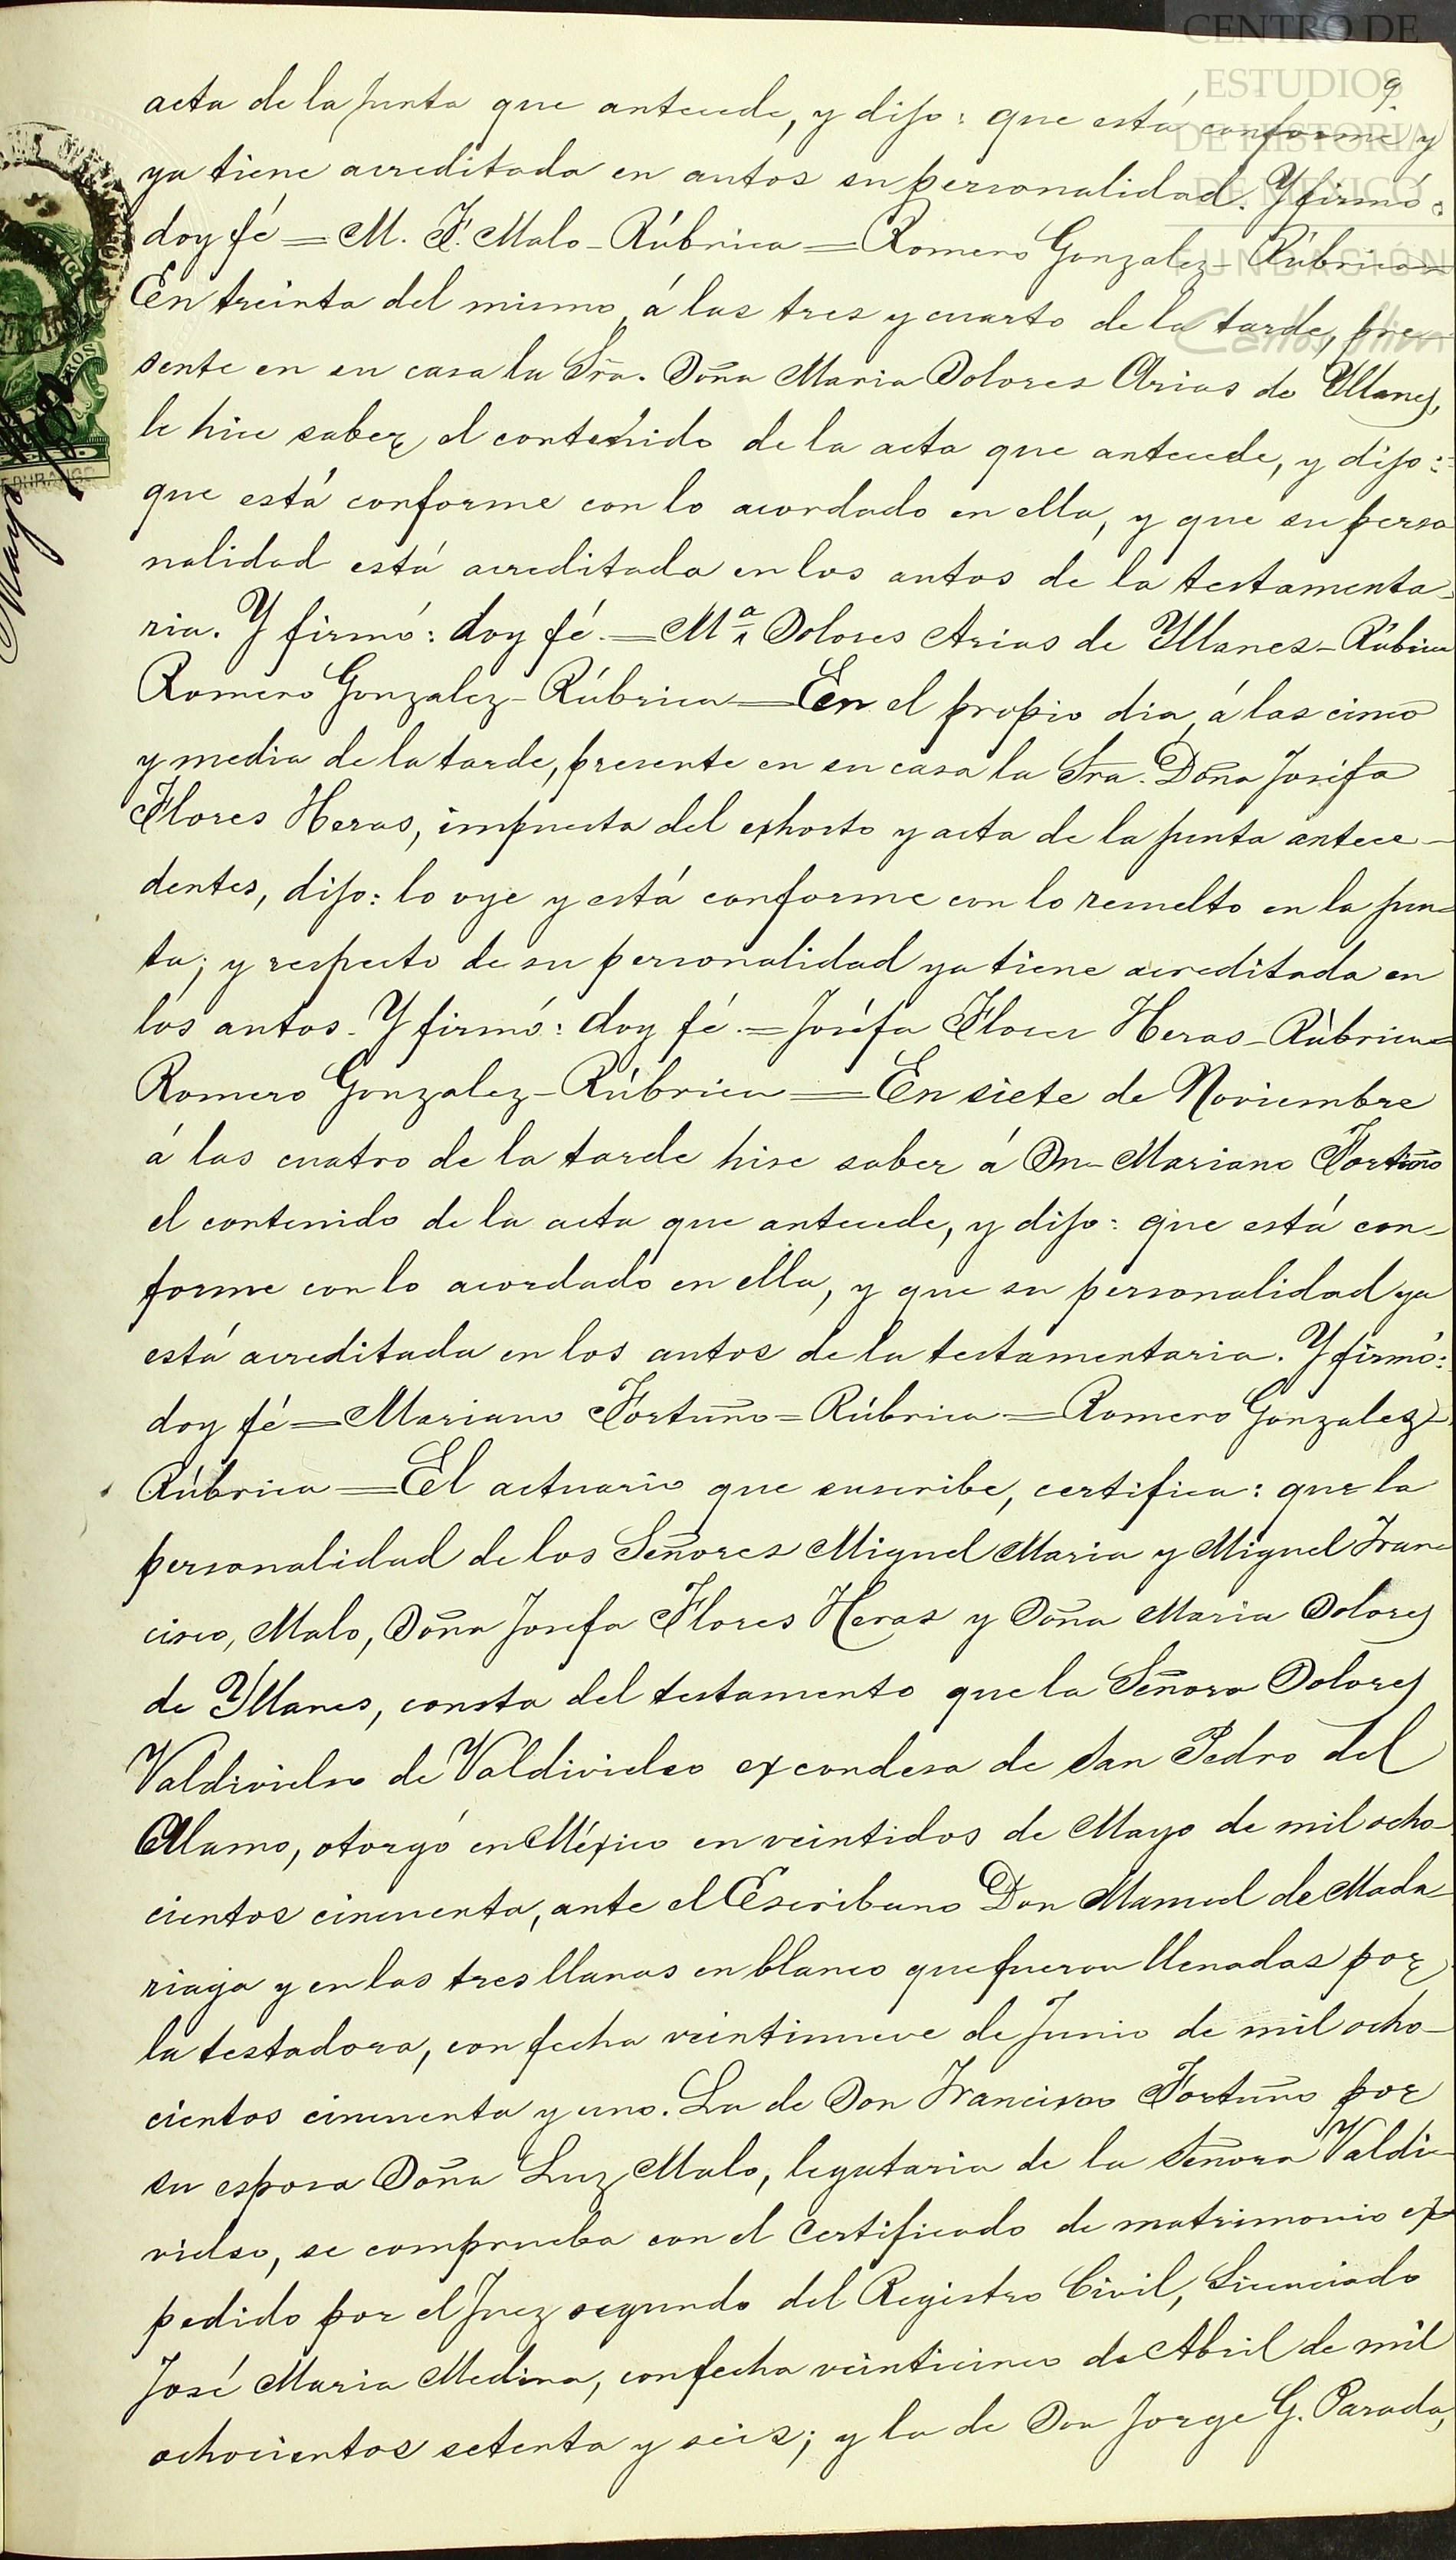 CENTRO DE
ESTUDIOS
DE HISTORIA
DE MÉXICO
FUNDACIÓN
Carlos Slim
9.
acta de la junta que antecede, y dijo: que está conforme y
ya tiene acreditada en autos su personalidad. Y firmó:
doy fé = M. F. Malo - Rúbrica = Romero Gonzalez - Rúbrica =
En treinta del mismo, á las tres y cuarto de la tarde, pre-
sente en su casa la Sra. Doña Maria Dolores Arias de Yllanes,
le hice saber el contenido de la acta que antecede, y dijo:
que está conforme con lo acordado en ella, y que su perso
nalidad está acreditada en los autos de la testamenta-
ria. Y firmó: doy fé. = Mª Dolores Arias de Yllanes - Rúbrica
Romero Gonzalez - Rúbrica = En el propio dia, á las cinco
y media de la tarde, presente en su casa la Sra. Doña Joséfa
Flores Heras, impuesta del exhorto y acta de la junta antece-
dentes, dijo: lo oye y está conforme con lo resuelto en la jun-
ta; y respecto de su personalidad ya tiene acreditada en
los autos. Y firmó: doy fé. = Joséfa Flores Heras - Rúbrica =
Romero Gonzalez - Rúbrica = En siete de Noviembre
á las cuatro de la tarde hice saber á Dn. Mariano Fortuño
el contenido de la acta que antecede, y dijo: que está con-
forme con lo acordado en ella, y que su personalidad ya
está acreditada en los autos de la testamentaria. Y firmó:
doy fé = Mariano Fortuño = Rúbrica = Romero Gonzalez -
Rúbrica = El actuario que suscribe, certifica: que la
personalidad de los Señores Miguel Maria y Miguel Fran-
cisco, Malo, Doña Josefa Flores Heras y Doña Maria Dolores
de Yllanes, consta del testamento que la Señora Dolores
Valdivielso de Valdivielso ex condesa de San Pedro del
Alamo, otorgó en México en veintidos de Mayo de mil ocho-
cientos cincuenta, ante el Escribano Don Manuel de Mada-
riaga y en las tres llanas en blanco que fueron llenadas por
la testadora, con fecha veintinueve de Junio de mil ocho-
cientos cincuenta y uno. La de Don Francisco Fortuño por
su esposa Doña Luz Malo, legataria de la Señora Valdi-
vielso, se comprueba con el certificado de matrimonio ex-
pedido por el Juez segundo del Registro Civil, Licenciado
José Maria Medina, con fecha veinticinco de Abril de mil
ochocientos setenta y seis; y la de Don Jorge G. Parada,